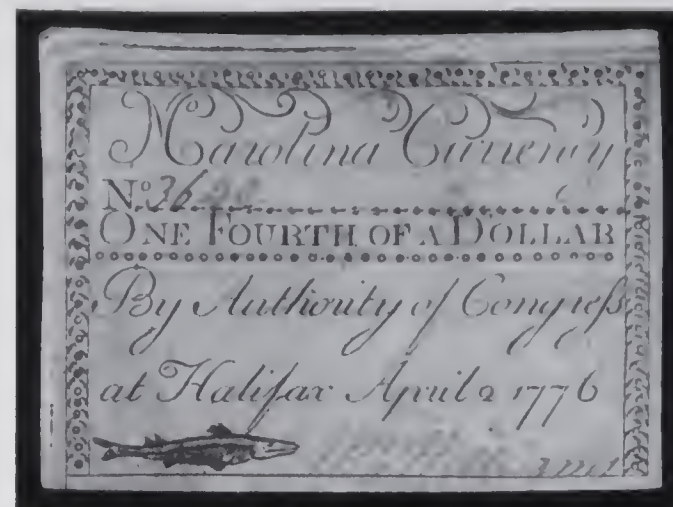 N Carolina Currency
No.
ONE FOURTH OF A DOLLAR
By Authority of Congreſs
at Halifax April 2 1776